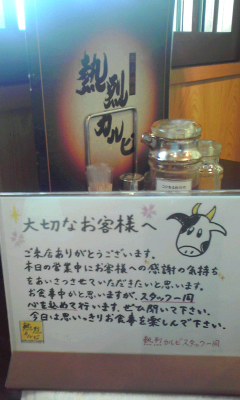 熱烈カルビ
大切なお客様へ
ご来店ありがとうございます。
本日の営業中にお客様への感謝の気持ち
をあいさつさせていただきたいと思います。
お食事中かと思いますが、スタッフ一同
心を込めて行います、ぜひ聞いて下さい。
今日は、思いっきりお食事を楽しんで下さい。
熱烈カルビスタッフ一同
熱烈
カルビ